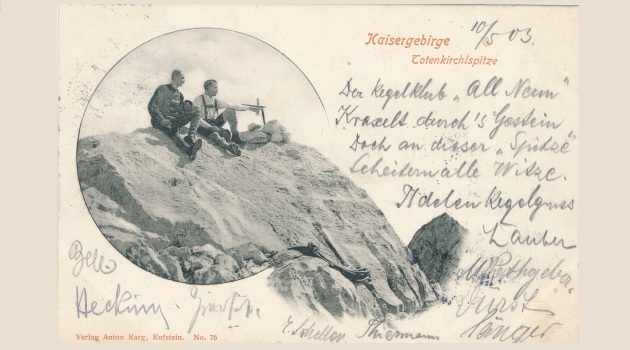 Kaisergebirge
Totenkirchlspitze
10/5 03.
Der Kegelklub „All Neun"
Kraxelt durch's Gestein
Doch an dieser „Spitze"
Scheitern alle Witze.
Fidelen Kegelgruss
Lauber
Hecking.
E. Scheller Thiermann
Sänger
Verlag Anton Karg, Kufstein. No. 76